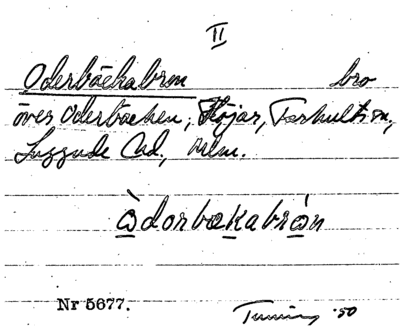 II
Oderbäckabron bro
över Oderbäcken, Höjar, Farhults sn,
Luggude hd, Mlm.
Òdorbækabrón
Nr 5677. '50